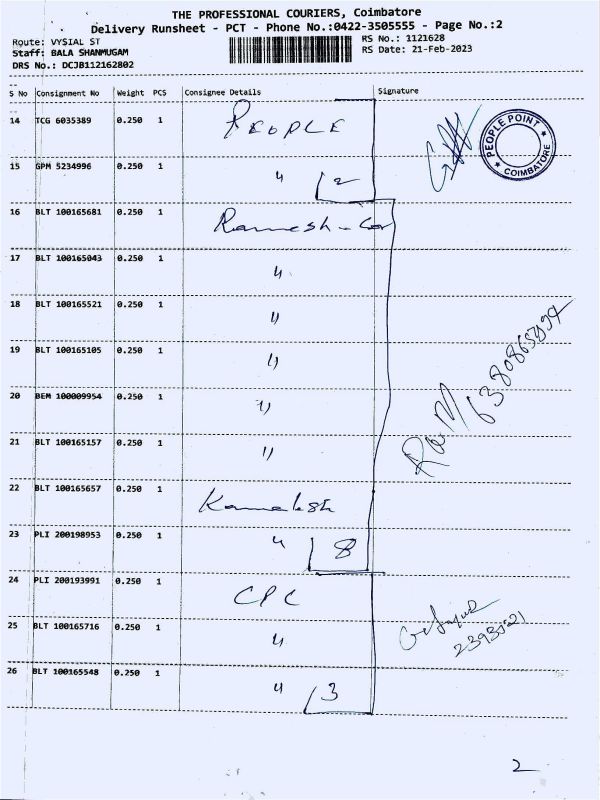 THE PROFESSIONAL COURIERS, Coimbatore
Delivery Runsheet - PCT - Phone No.:0422-3505555 - Page No.:2
Route: VYSIAL ST
RS No.: 1121628
Staff: BALA SHANMUGAM
RS Date: 21-Feb-2023
DRS No.: DCJB112162802
S No Consignment No Weight PCS Consignee Details Signature
14 TCG 6035389 0.250 1 PEOPLE
PEOPLE POINT
COIMBATORE
15 GPM 5234996 0.250 1 " 2
16 BLT 100165681 0.250 1 Ramesh - Car
17 BLT 100165043 0.250 1 "
18 BLT 100165521 0.250 1 "
19 BLT 100165105 0.250 1 "
20 BEM 100009954 0.250 1 "
21 BLT 100165157 0.250 1 "
22 BLT 100165657 0.250 1 Kamalesh
23 PLI 200198953 0.250 1 " 8
24 PLI 200193991 0.250 1 CPC
25 BLT 100165716 0.250 1 "
26 BLT 100165548 0.250 1 " 3
2